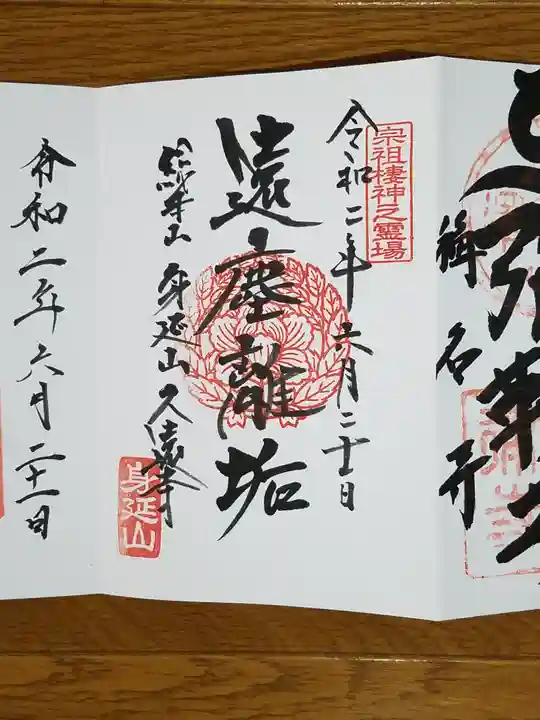 稱名寺
宗祖棲神之霊場
令和二年六月二十日
遠塵離垢
総本山 身延山久遠寺
身延山
令和二年六月二十一日